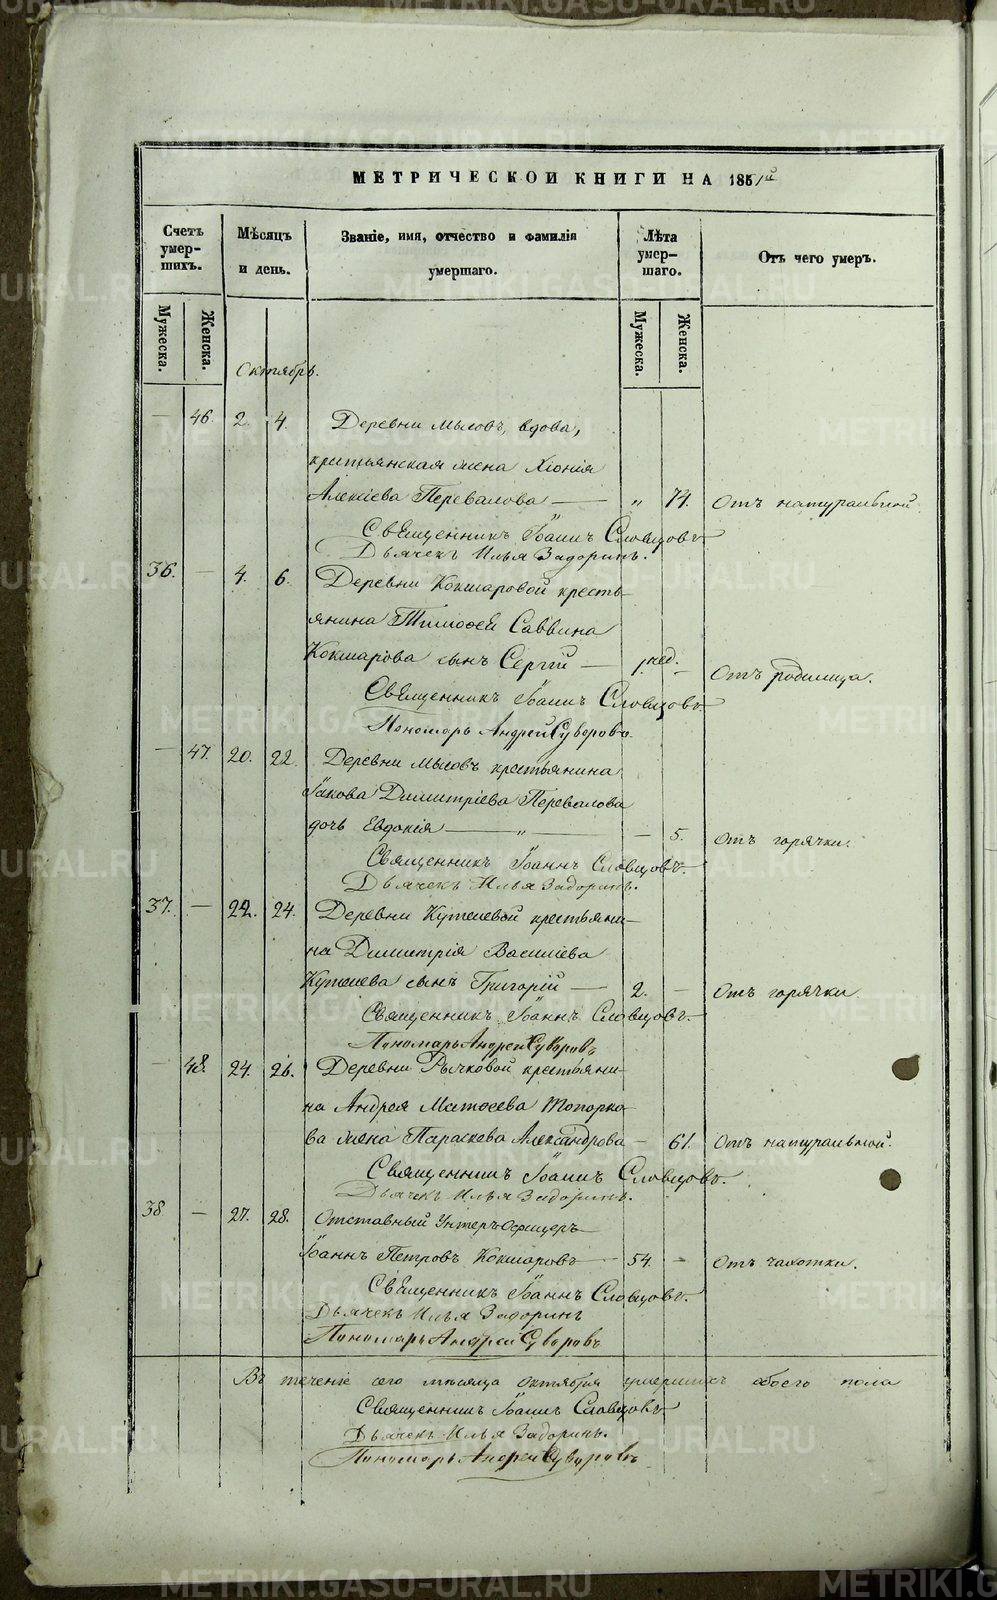 METRIKI.GASO-URAL.RU
МЕТРИЧЕСКОЙ КНИГИ НА 1851й
Счетъ умершихъ.
Мѣсяцъ и день.
Званіе, имя, отчество и фамилія умершаго.
Лѣта умершаго.
Отъ чего умеръ.
Мужеска.
Женска.
Мужеска.
Женска.
Октябрь.
— 46. 2. 4. Деревни Мысовъ, вдова,
крестьянская жена Хіонія
Алексіева Перевалова — „ 74. Отъ натуральной.
Священникъ Іоаннъ Словцовъ
Дьячекъ Илья Задоринъ.
36. — 4. 6. Деревни Кокшаровой кресть-
янина Тимофей Саввина
Кокшарова сынъ Сергій — 1 нед. — Отъ родимца.
Священникъ Іоаннъ Словцовъ
Пономарь Андрей Суворовъ.
— 47. 20. 22. Деревни Мысовъ крестьянина
Іакова Димитріева Перевалова
дочь Евдокія — „ — — 5. Отъ горячки.
Священникъ Іоаннъ Словцовъ.
Дьячекъ Илья Задоринъ.
37. — 22. 24. Деревни Кутеневой крестьяни-
на Димитрія Василіева
Кутенева сынъ Григорій — 2. — Отъ горячки.
Священникъ Іоаннъ Словцовъ.
Пономарь Андрей Суворовъ
— 48. 24. 26. Деревни Рычковой крестьяни-
на Андрея Матѳеева Топорко-
ва жена Параскева Александрова — 61. Отъ натуральной.
Священникъ Іоаннъ Словцовъ.
Дьячекъ Илья Задоринъ.
38. — 27. 28. Отставный Унтеръ-Офицеръ
Іоаннъ Петровъ Кокшаровъ — 54. — Отъ чахотки.
Священникъ Іоаннъ Словцовъ.
Дьячекъ Илья Задоринъ
Пономарь Андрей Суворовъ
Въ теченіе сего мѣсяца октября умершихъ обоего пола
Священникъ Іоаннъ Словцовъ
Дьячекъ Илья Задоринъ.
Пономарь Андрей Суворовъ